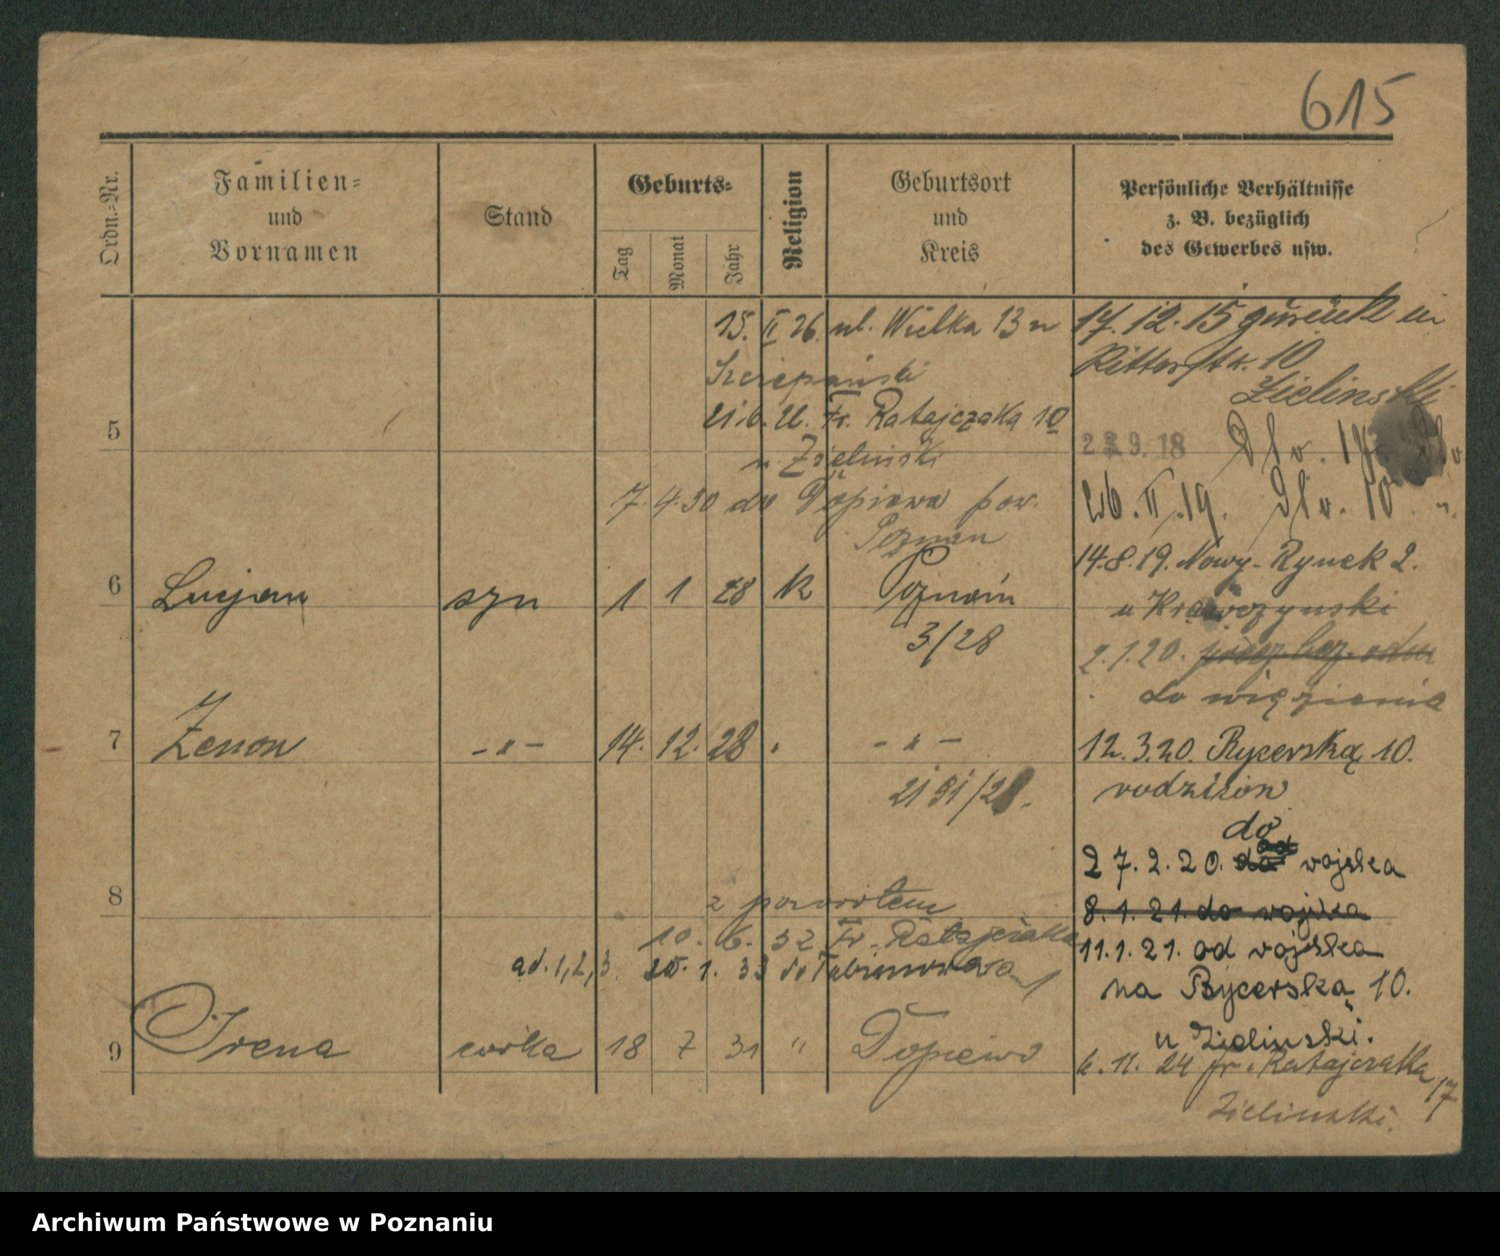 615
Ordn.-Nr.
Familien-
und
Vornamen
Stand
Geburts-
Tag
Monat
Jahr
Religion
Geburtsort
und
Kreis
Persönliche Verhältnisse
z. B. bezüglich
des Gewerbes usw.
15. II 26. ul. Wielka 13 u
Szczepański
21.6.26. Fr. Ratajczaka 10
u Zieliński
7.4.30 do Dopiewa pow.
Poznan
5
6 Lucjan syn 1 1 28 k Poznań
3/28
7 Zenon -"- 14. 12. 28 -"-
8
z powrotem
10. 6. 32 Fr. Ratajczaka
ad. 1, 2, 3. 1. 33
9 Irena córka 18 7 31 " Dopiewo
17.12.15 zurück in
Ritterstr. 10
Zielinski
9.18
26. II. 19. 10
14.8.19. Nowy-Rynek 2.
u Krawczynski
2.1.20.
do więzienia
12.3.20. Rycerską 10.
rodzicow
do
27.2.20. do wojska
8.1.21. do wojska
11.1.21. od wojska
na Rycerską 10.
u Zielinski.
6.11.24 Fr. Ratajczaka 17
Zielinski.
Archiwum Państwowe w Poznaniu